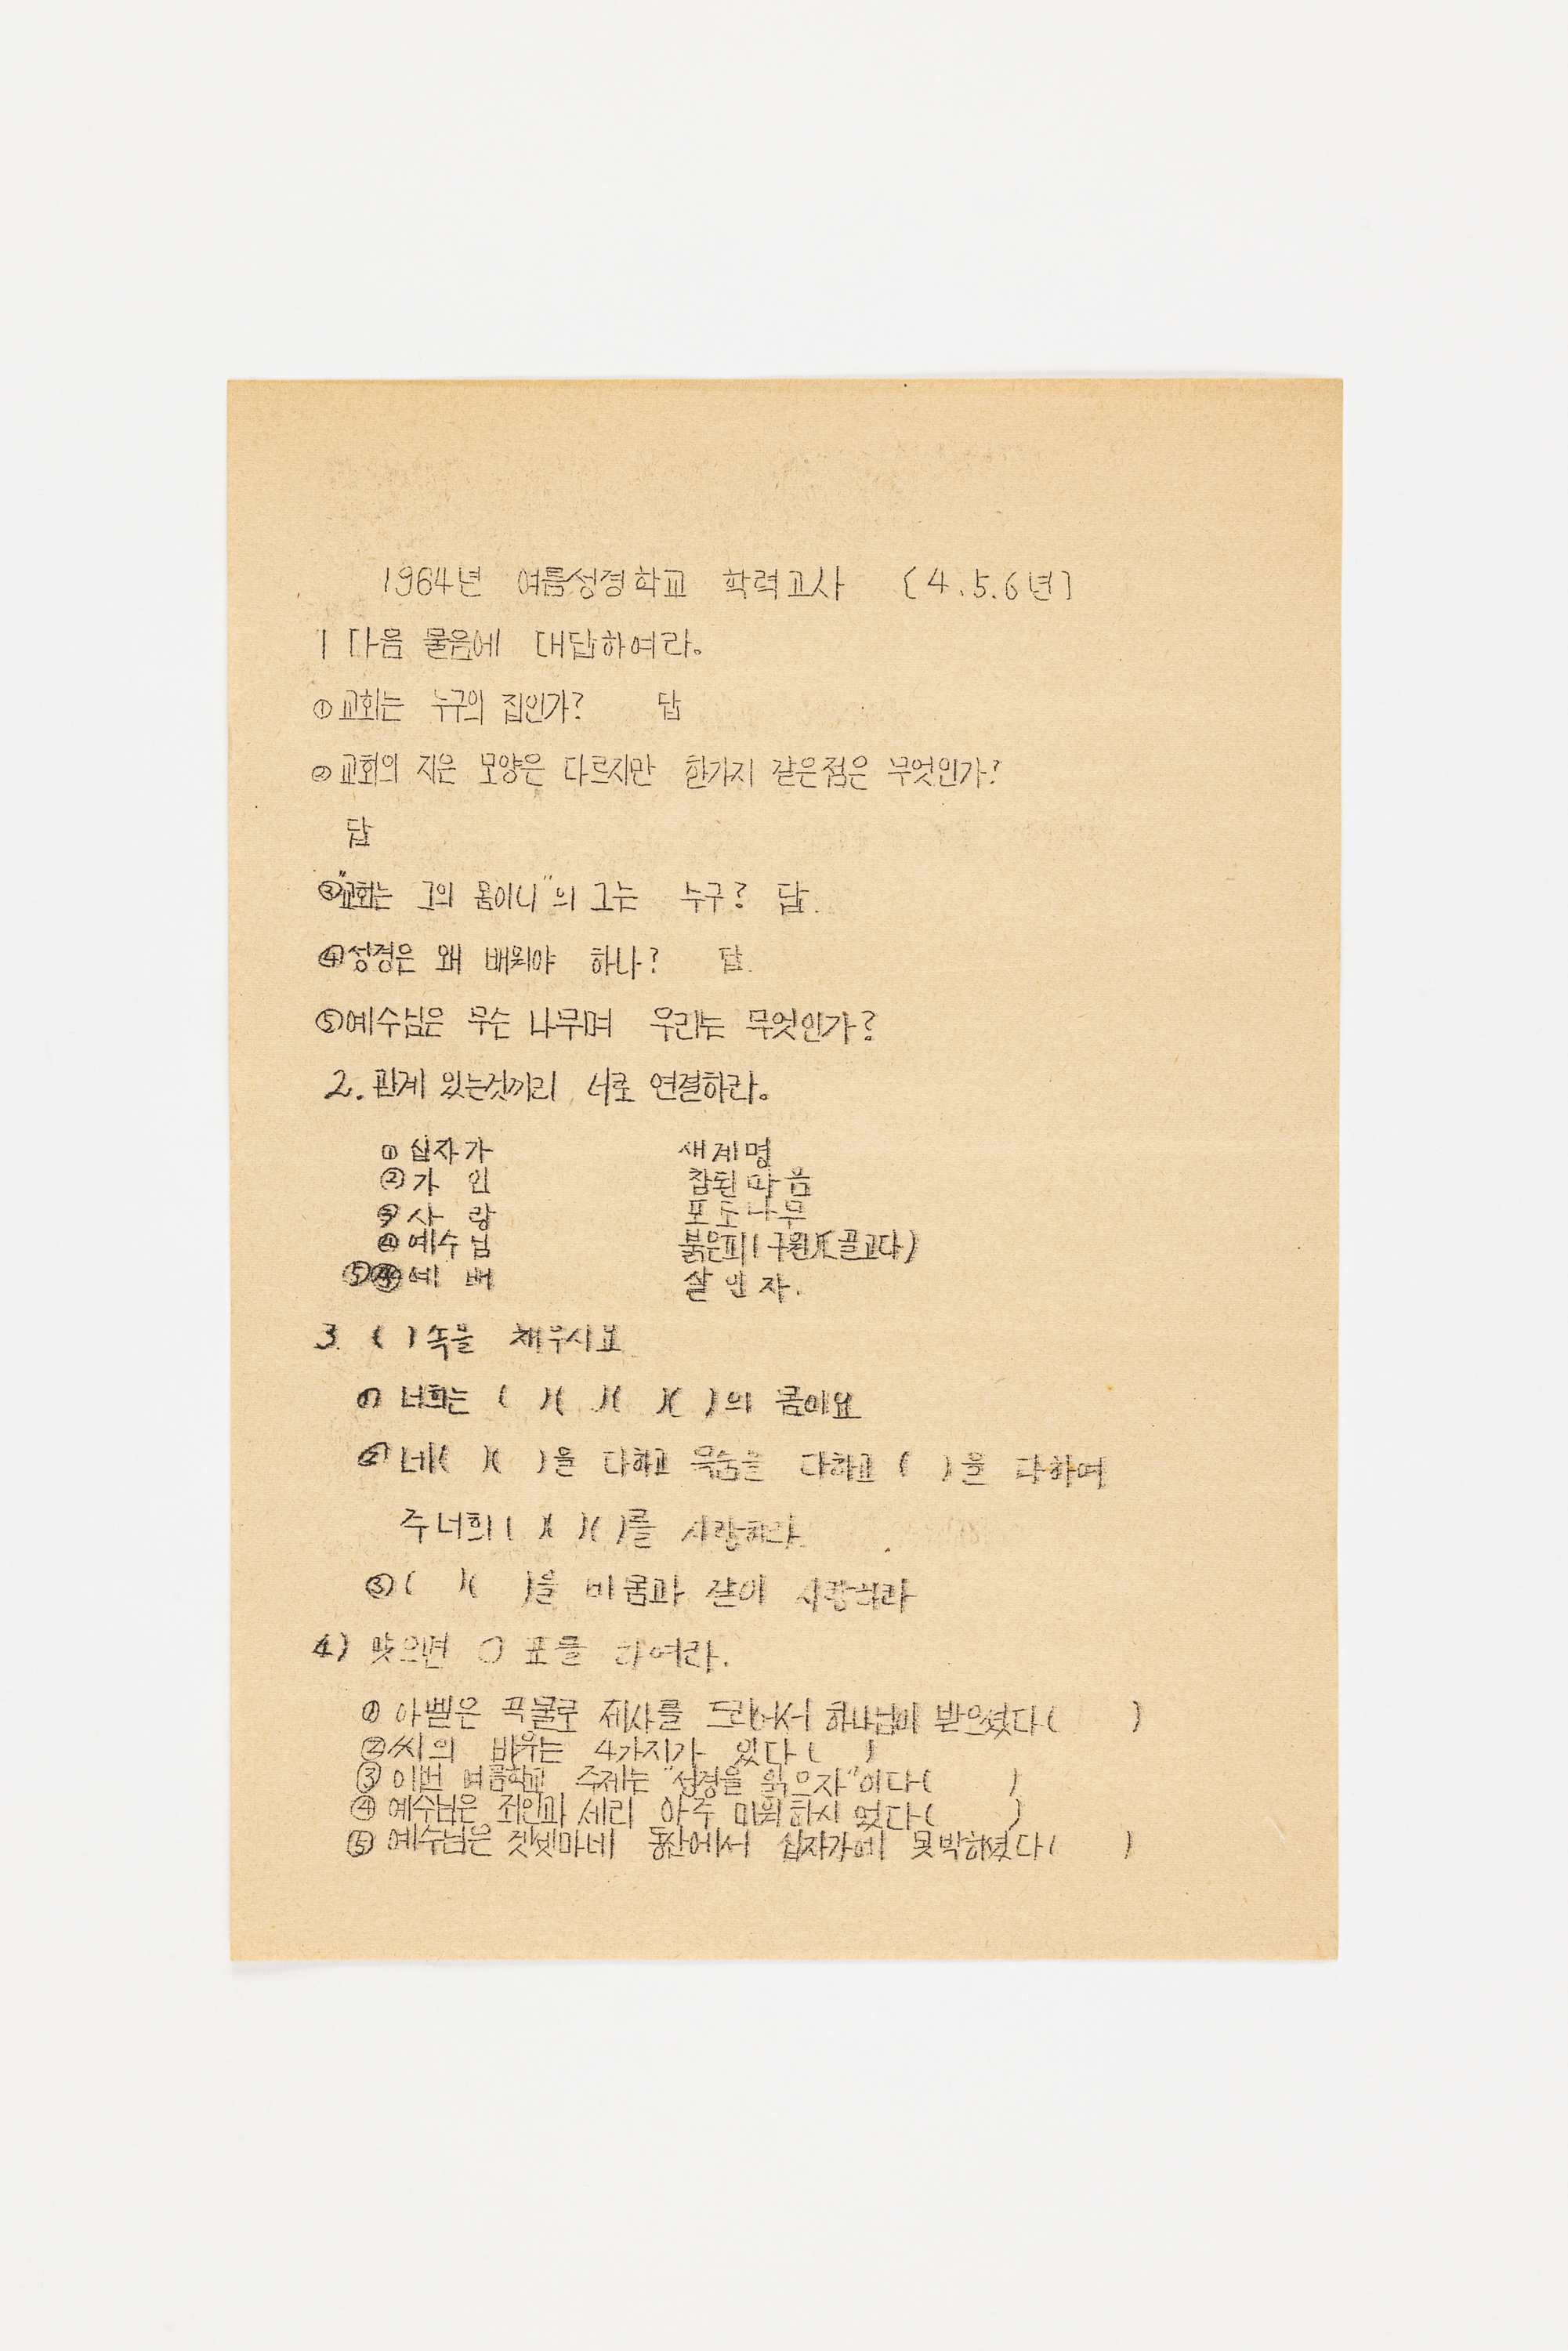 1964년 여름성경학교 학력고사 (4.5.6년)
1 다음 물음에 대답하여라.
① 교회는 누구의 집인가? 답
② 교회의 지은 모양은 다르지만 한가지 같은점은 무엇인가?
답
③ "교회는 그의 몸이니"의 그는 누구? 답.
④ 성경은 왜 배워야 하나? 답.
⑤ 예수님은 무슨 나무며 우리는 무엇인가?
2. 관계 있는것끼리 서로 연결하라.
① 십자가 새계명
② 가 인 참된마음
③ 사 랑 포도나무
④ 예수님 붉은피(구원)(골고다)
⑤ 예 배 살인자.
3. ( )속을 채우시요
① 너희는 ( )( )( )( )의 몸이요
② 네( )( )을 다하고 목숨을 다하고 ( )을 다하여
주너희( )( )( )를 사랑하라
③ ( )( )을 네몸과 같이 사랑하라
4) 맞으면 ○표를 하여라.
① 아벨은 곡물로 제사를 드려서 하나님이 받으셨다( )
② 씨의 비유는 4가지가 있다( )
③ 이번 여름학교 주제는 "성경을 읽으자"이다( )
④ 예수님은 죄인과 세리 아주 미워하시였다( )
⑤ 예수님은 겟셋마네 동산에서 십자가에 못박히셨다( )